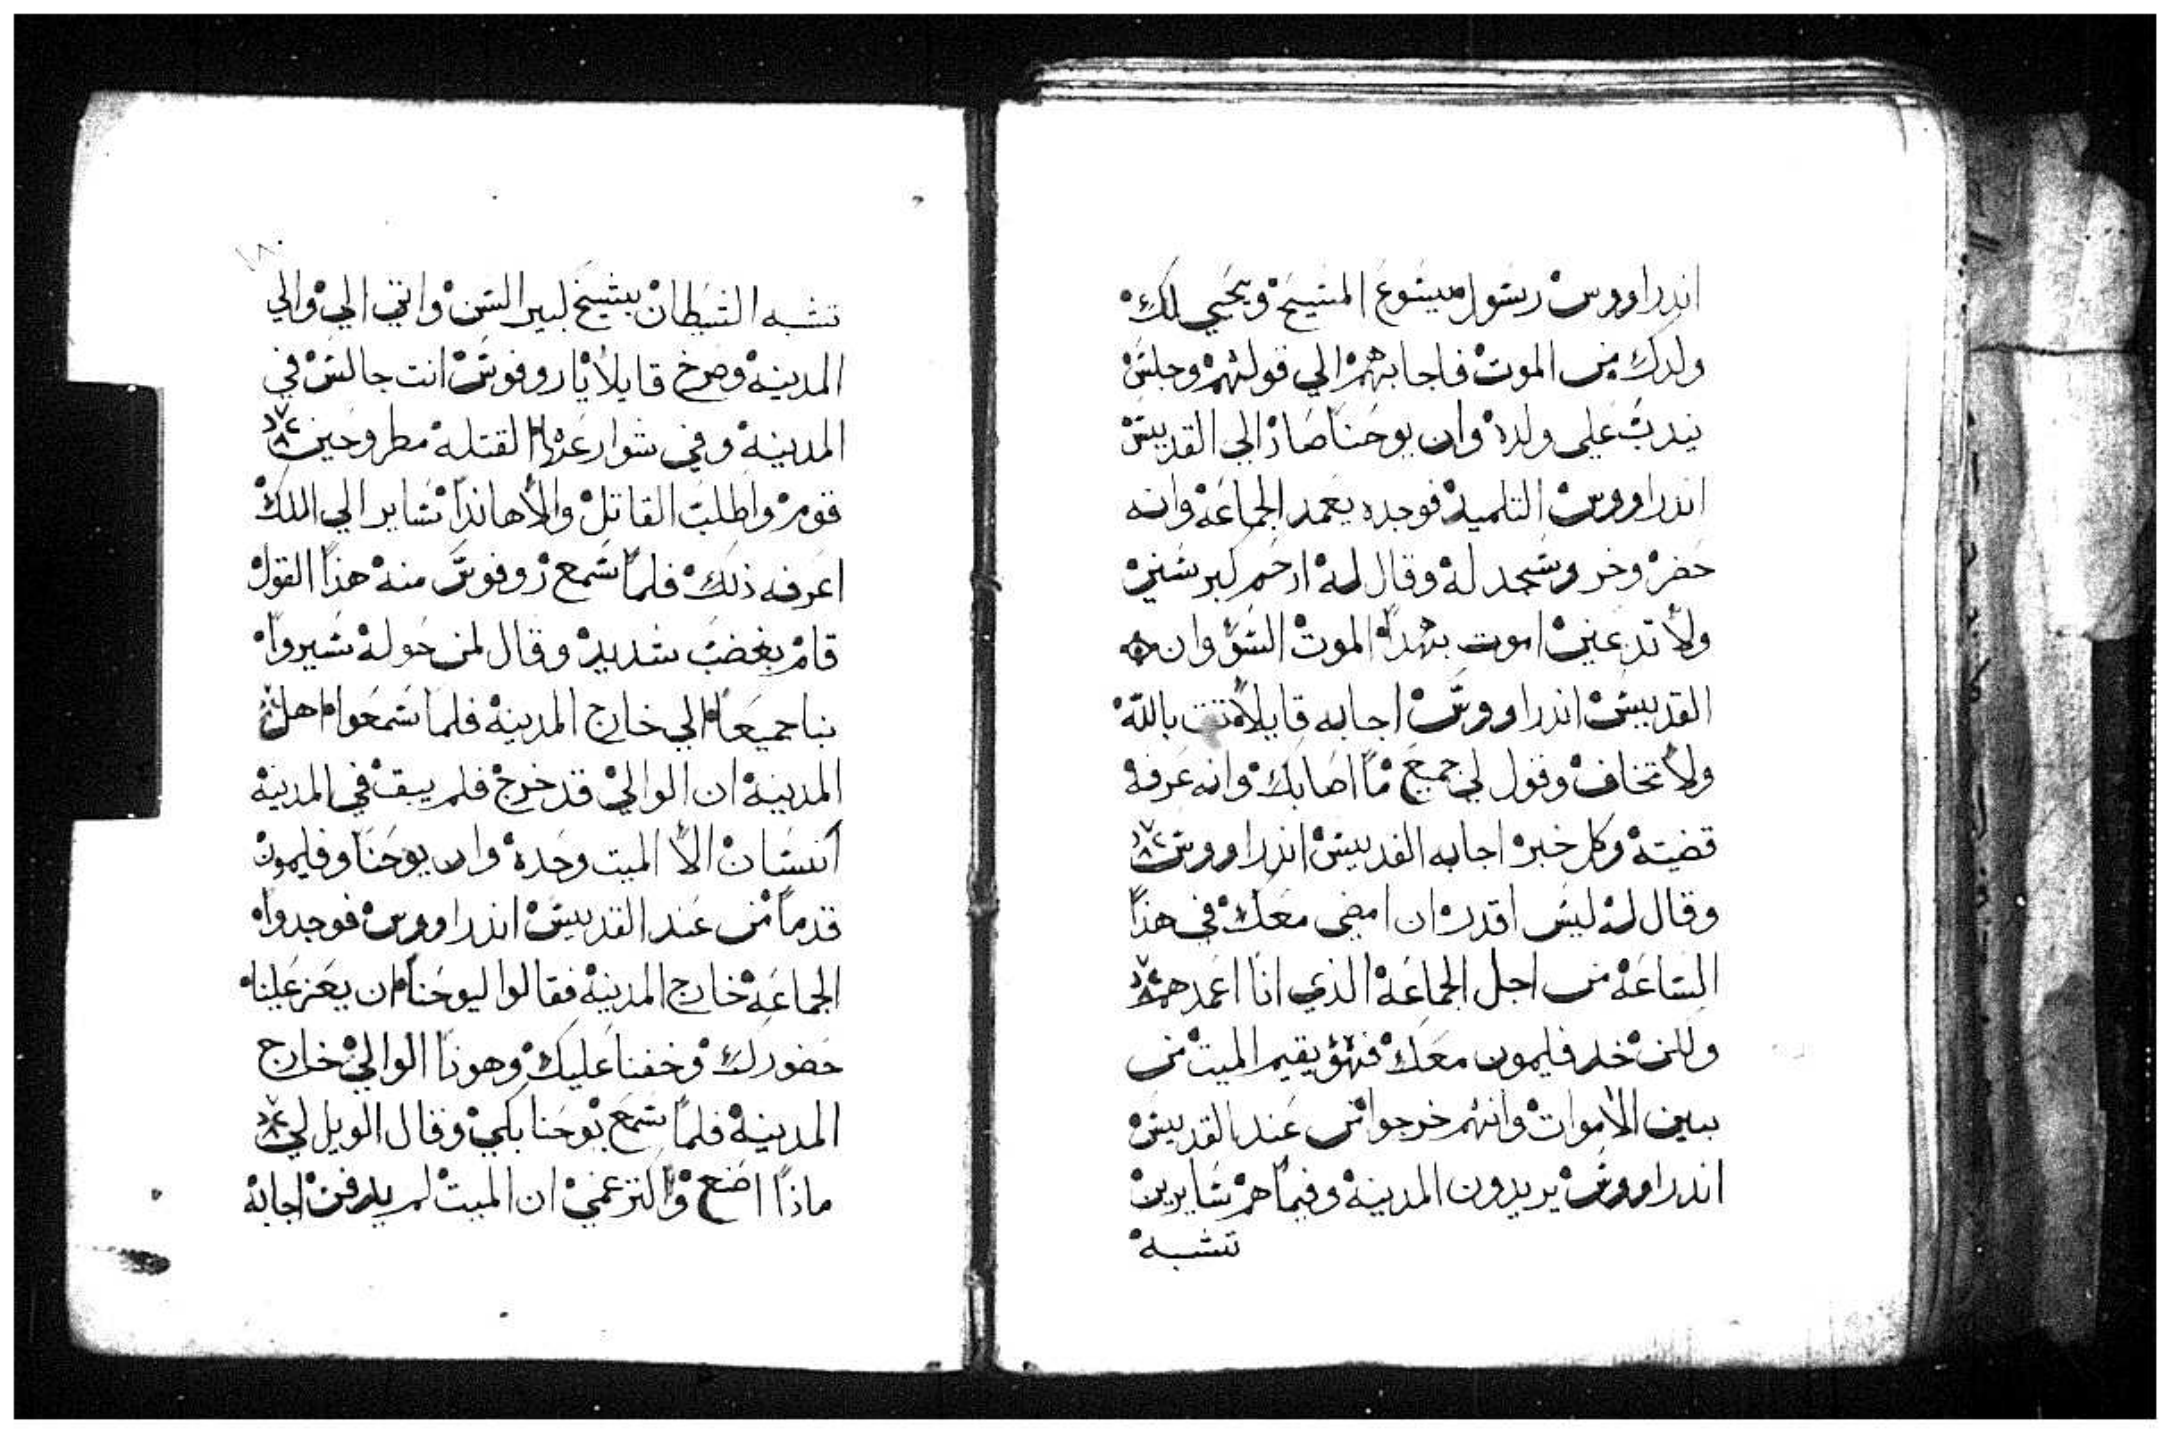 اندراووس رسول ميسوع المسيح ويحيي لك
ولدك من الموت فاجابهم الي قولهم وجلس
يندب علي ولده وان يوحنا صار الي القديس
اندراووس التلميد فوجده يعمد الجماعة وانه
حضر وخر وسجد له وقال له ارحم كبر سني
ولا تدعني اموت بهدا الموت السو وان
القديس اندراووس اجابه قايلا تتق بالله
ولا تخاف وقول لي جميع ما اصابك وانه عرفه
قضيته وكل خبره اجابه القديس اندراووس
وقال له ليس اقدر ان امضي معك في هذا
الساعة من اجل الجماعة الذي انا اعمدهم
ولكن خد فليمون معك فهو يقيم الميت من
بين الاموات وانهم خرجوا من عند القديس
اندراووس يريدون المدينة وفيما هم سايرين
تشبه
١٨٠
تشبه الشيطان بشيخ كبير السن واتي الي والي
المدينة وصرخ قايلا يا روفوس انت جالس في
المدينة وفي شوارعها القتله مطروحين
قوم واطلب القاتل والا هاندا ساير الي الملك
اعرفه ذلك فلما سمع روفوس منه هذا القول
قام بغضب شديد وقال لمن حوله سيروا
بنا جميعا الي خارج المدينة فلما سمعوا اهل
المدينة ان الوالي قد خرج فلم يبق في المدينة
انسان الا الميت وحده وان يوحنا وفليمون
قدما من عند القديس اندراووس فوجدوا
الجماعة خارج المدينة فقالوا ليوحنا ان يعز علينا
حضورك وخفنا عليك وهوذا الوالي خارج
المدينة فلما سمع يوحنا بكي وقال الويل لي
ماذا اصنع واكتر غمي ان الميت لم يدفن اجابه